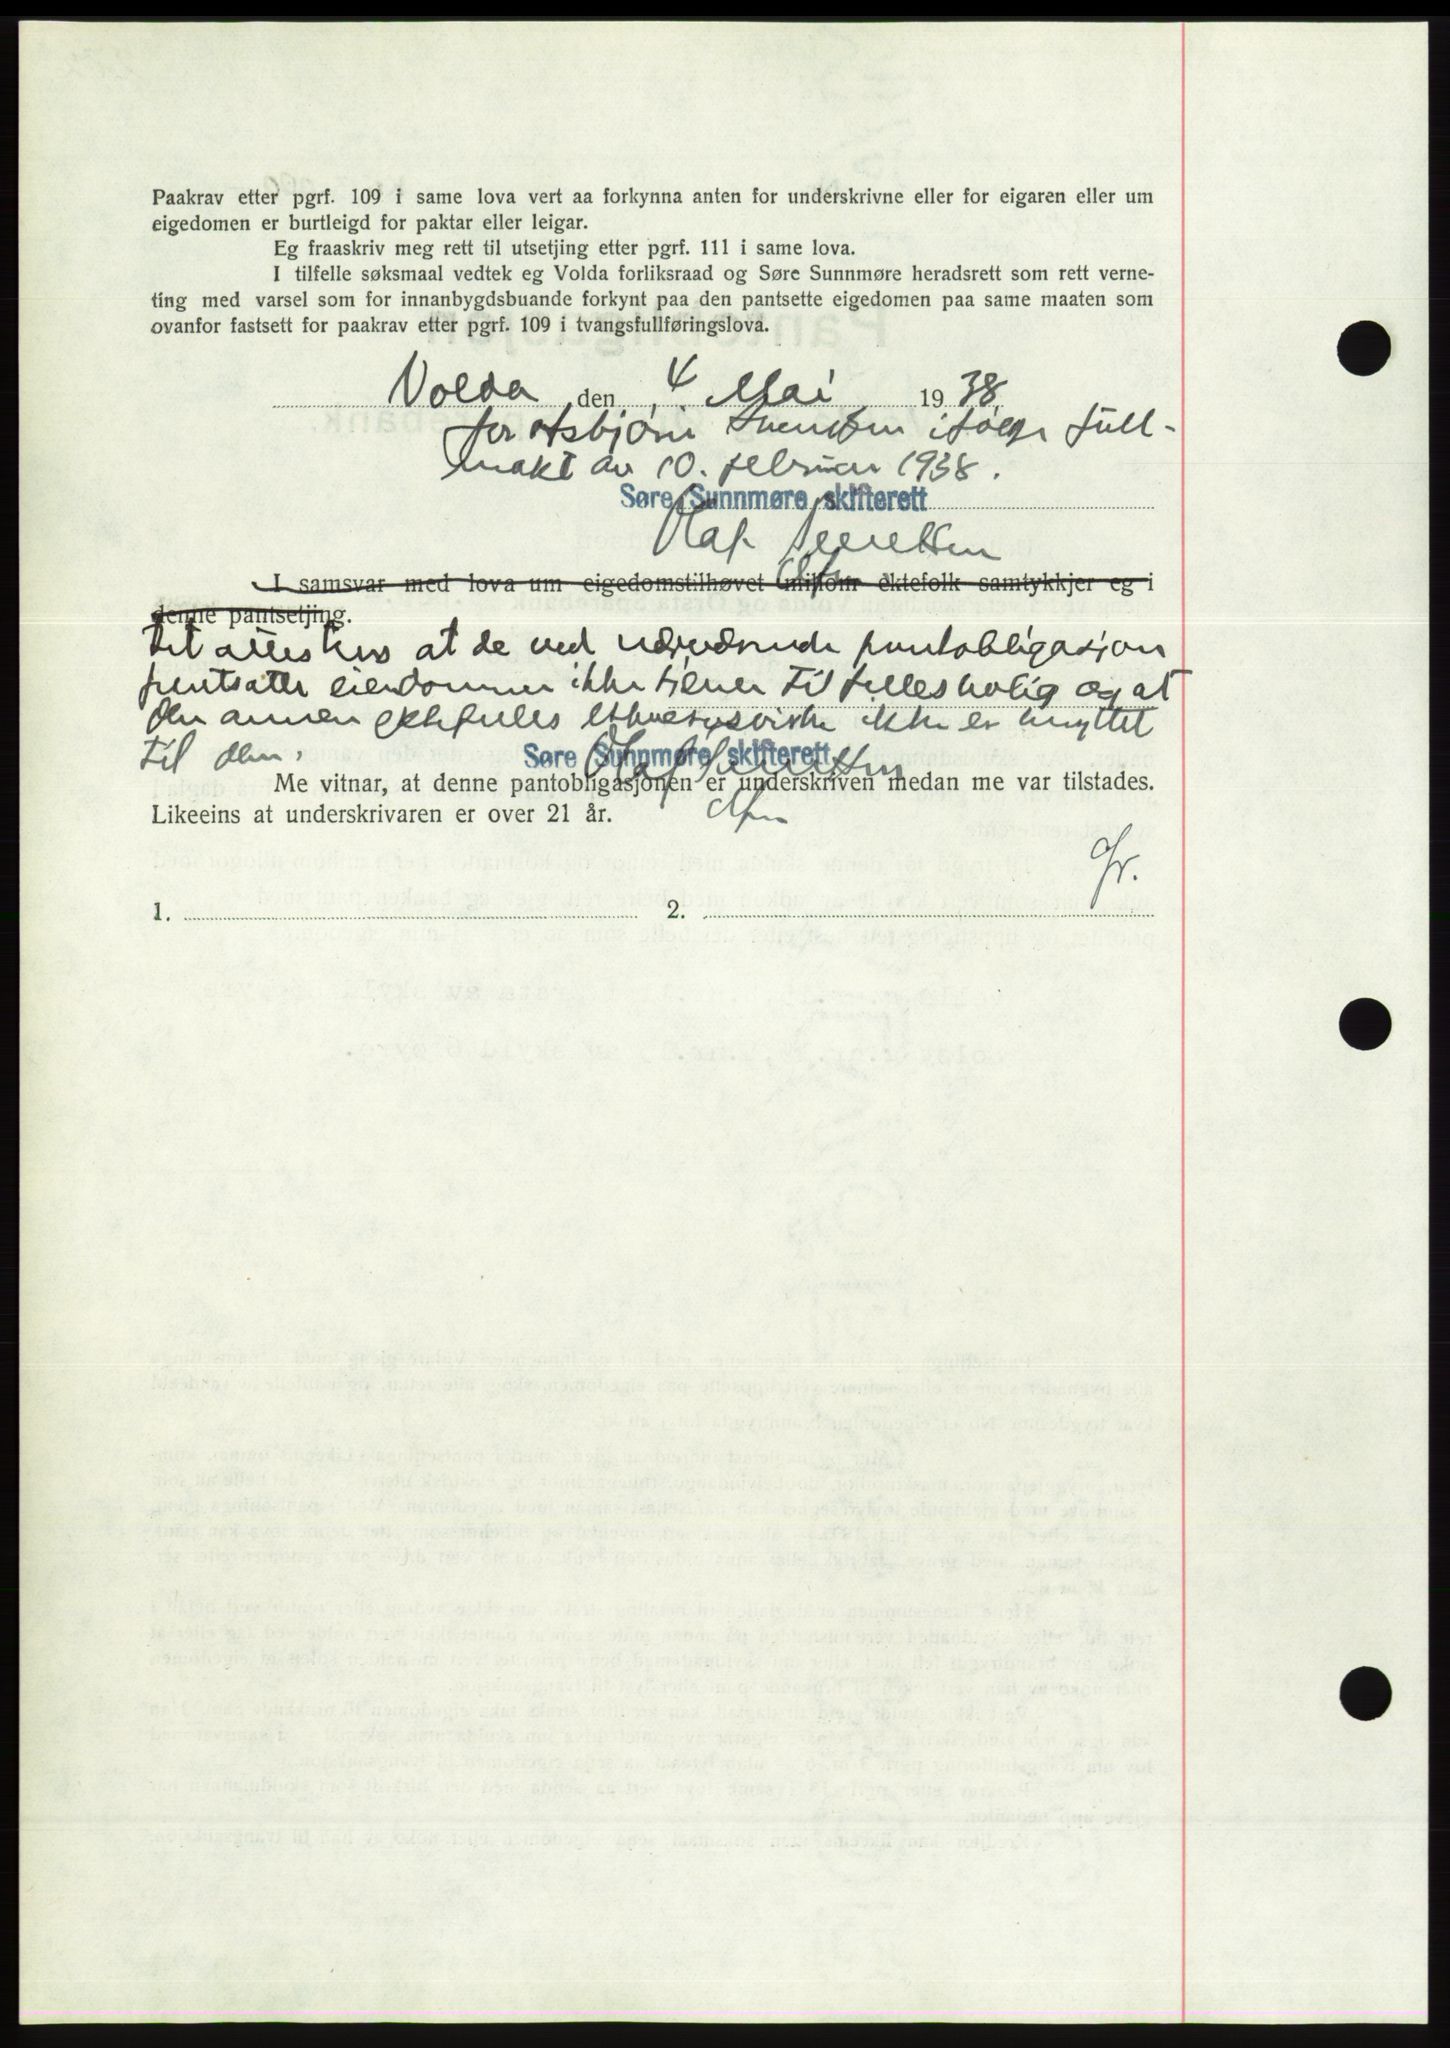 Paakrav etter pgrf. 109 i same lova vert aa forkynna anten for underskrivne eller for eigaren eller um
eigedomen er burtleigd for paktar eller leigar.
Eg fraaskriv meg rett til utsetjing etter pgrf. 111 i same lova.
I tilfelle søksmaal vedtek eg Volda forliksraad og Søre Sunnmøre heradsrett som rett verne-
ting med varsel som for innanbygdsbuande forkynt paa den pantsette eigedomen paa same maaten som
ovanfor fastsett for paakrav etter pgrf. 109 i tvangsfullføringslova.
Volda den 4 Mai 1938
for Asbjørn Svendsen ifølge full-
makt av 10. februar 1938.
Søre Sunnmøre skifterett
Olaf
I samsvar med lova um eigedomstilhøvet millom ektefolk samtykkjer eg i
denne pantsetjing.
Det attesteres at de ved nærværende pantobligasjon
pantsatte eiendommer ikke tjener til felles bolig og at
den annen ektefelles ervervsvirke ikke er knyttet
til den.
Søre Sunnmøre skifterett
Olaf
Me vitnar, at denne pantobligasjonen er underskriven medan me var tilstades.
Likeeins at underskrivaren er over 21 år.
1. 2.